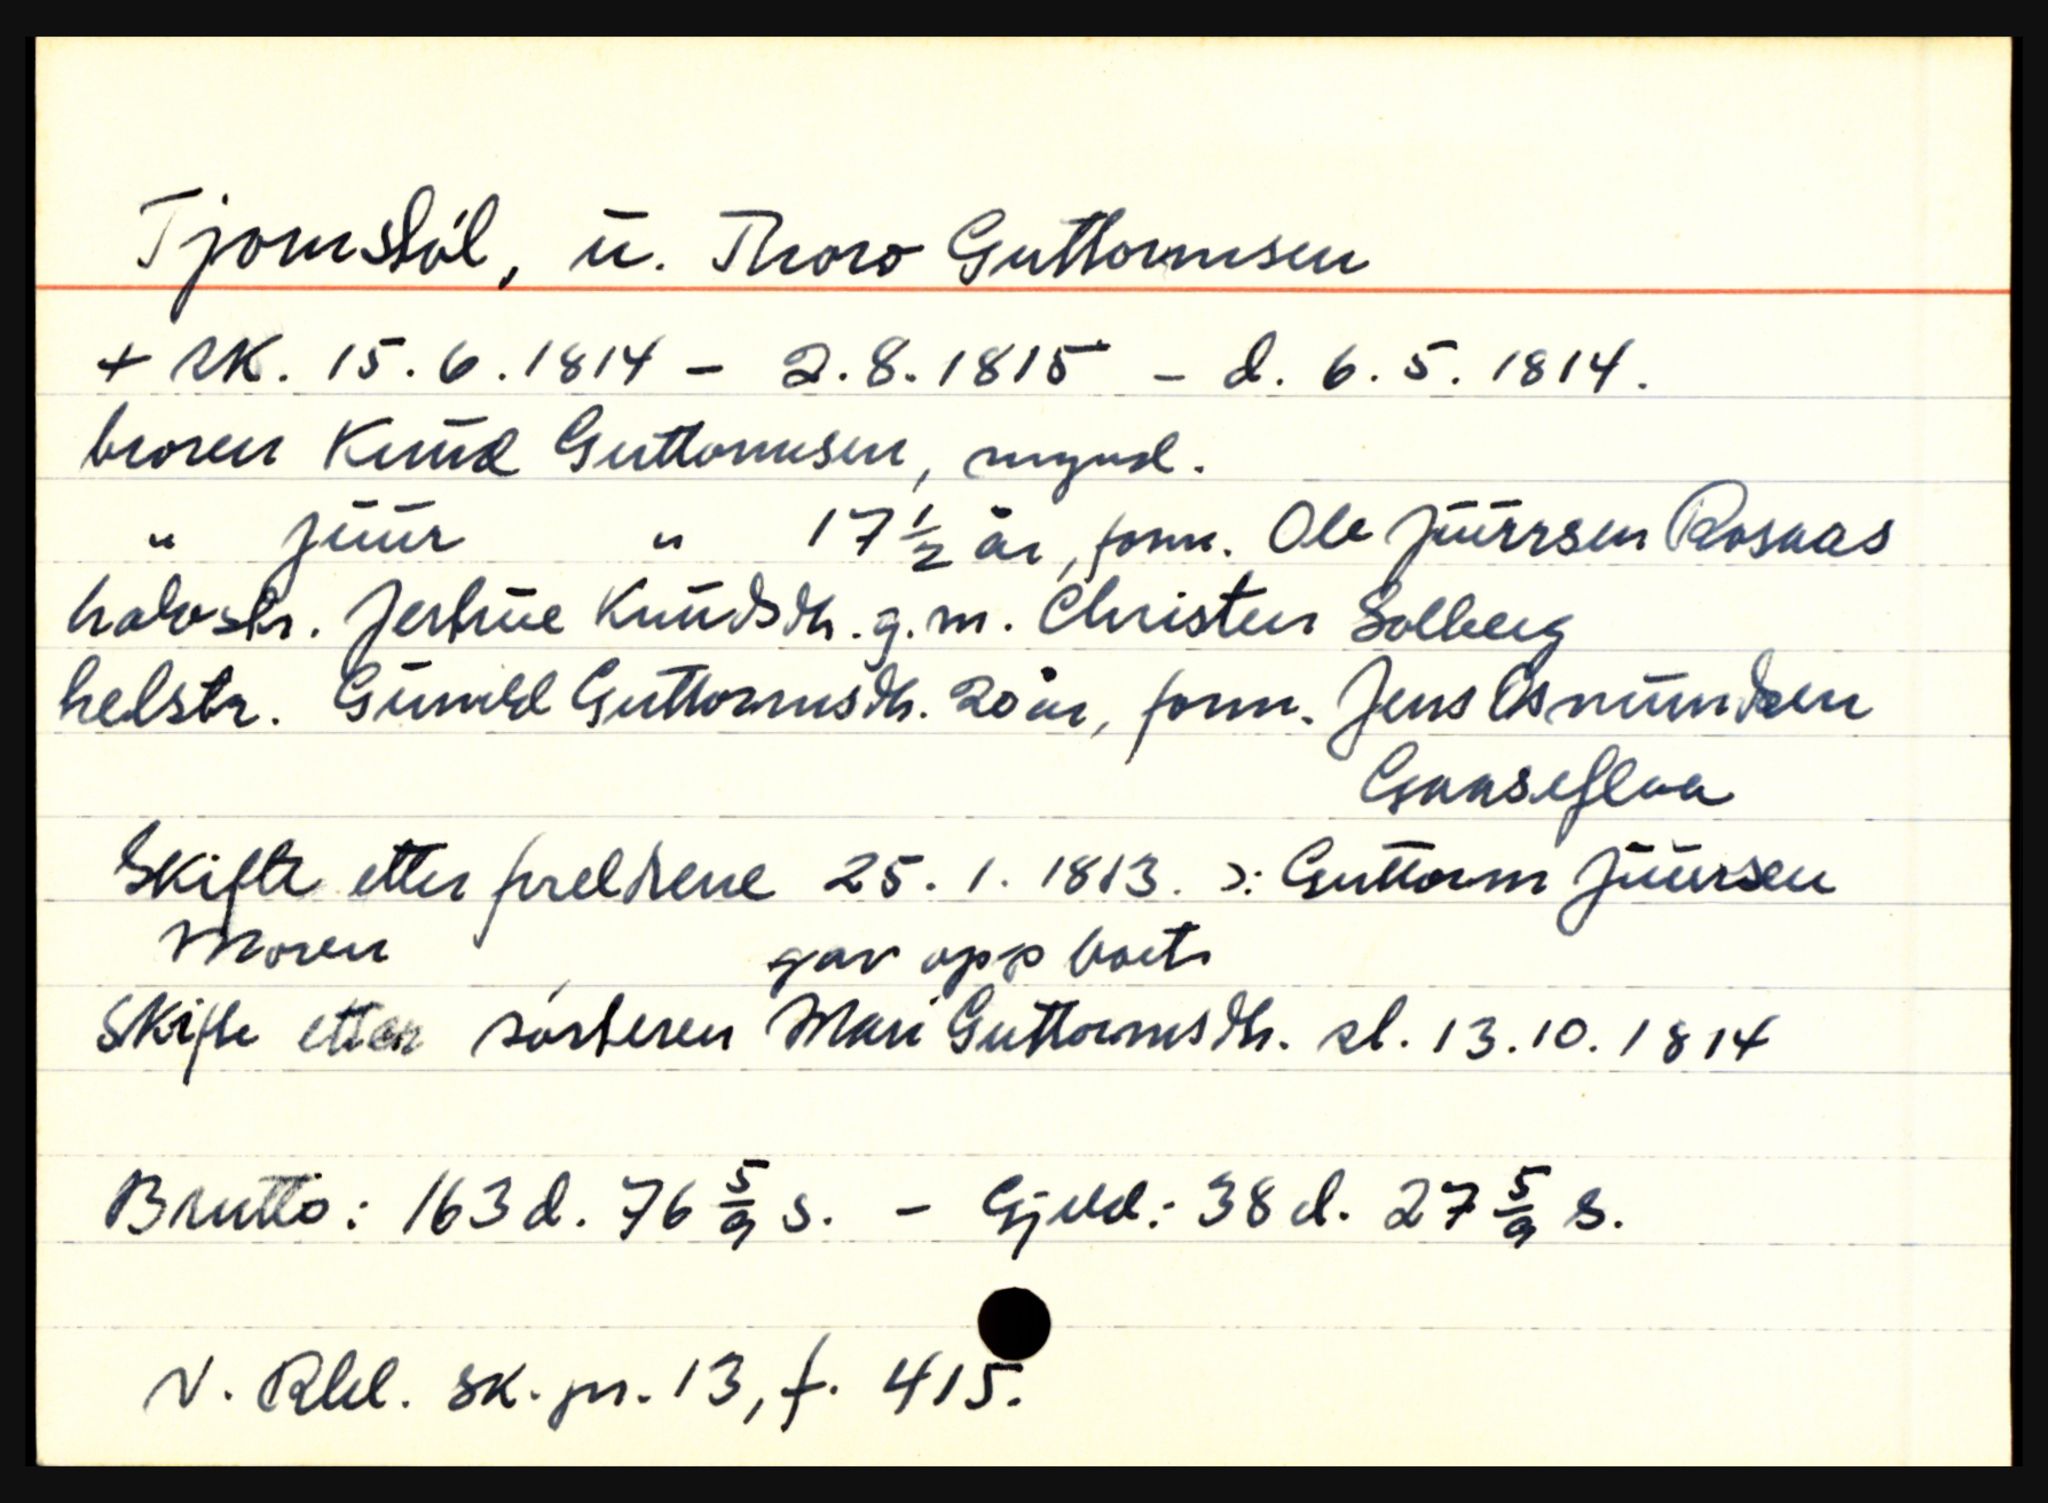 Tjomstøl, u. Thoro Guttormsen
+ sk. 15.6.1814 - 2.8.1815 - d. 6.5.1814.
broren Knud Guttormsen, mynd.
" Juur " 17 1/2 år, form. Ole Juursen Rosaas
halvstr. Jertrue Knudsdtr. g.m. Christen Solberg
helstr. Gunild Guttormsdtr. 20 år, form. Jens Osmundsen
Gaaseflaa
Skifte etter foreldrene 25.1.1813. ɔ: Guttorm Juursen
Moren gav opp boets
Skifte etter søsteren Mari Guttormsdtr. sl. 13.10.1814
Brutto: 163 d. 76 5/9 s. - Gjeld: 38 d. 27 5/9 s.
N. Rbl. sk. pr. 13, f. 415.